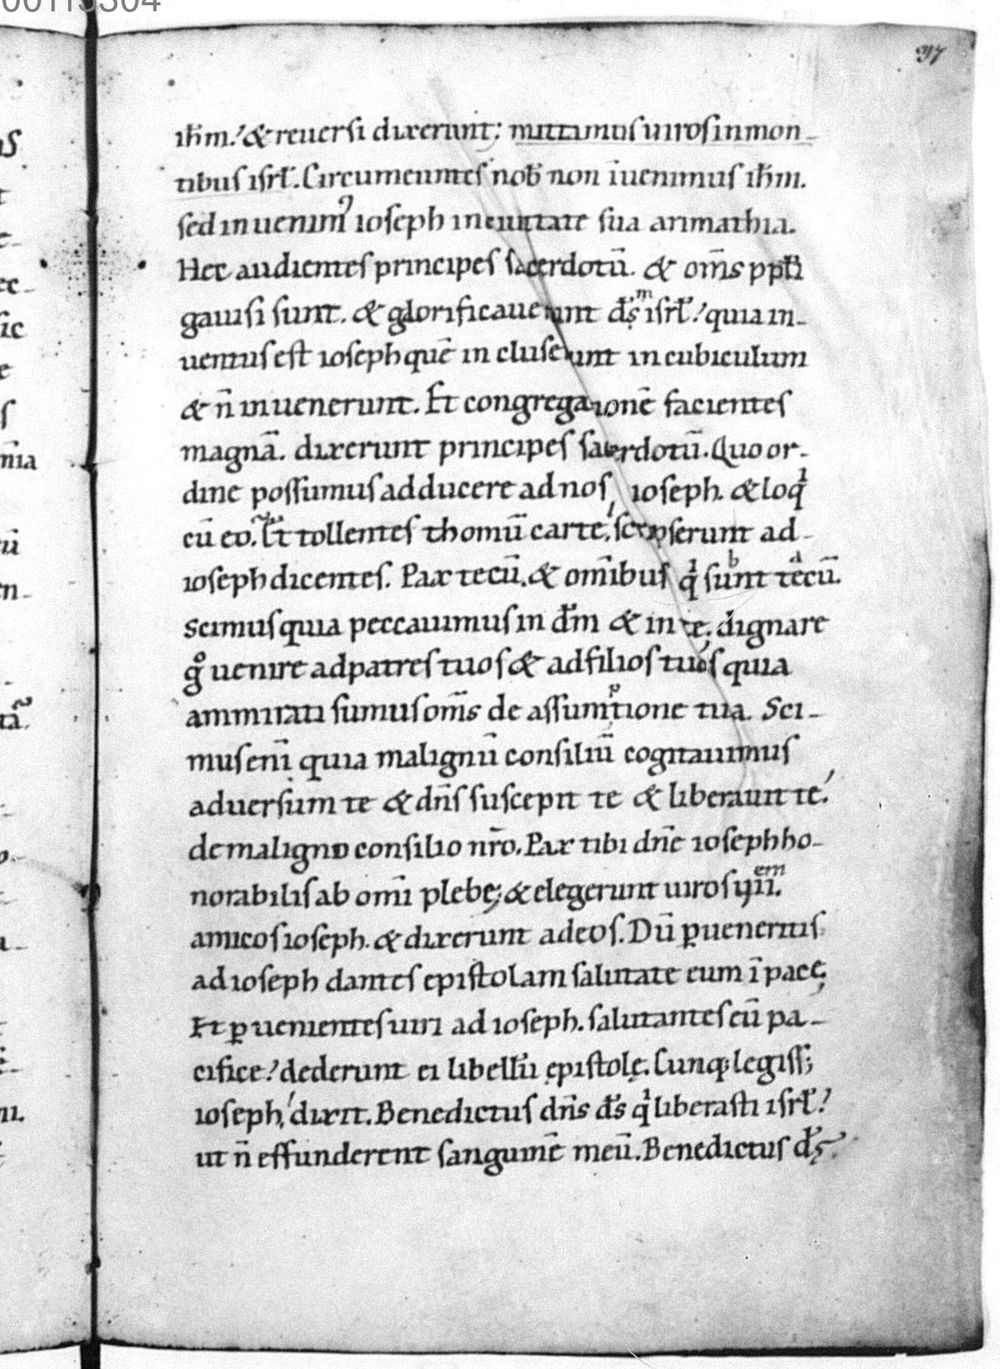 37
ih̄m. &reuersi dixerunt; mittimus uiros inmon-
tibus isrł. Circumeuntes nob̄ non īuenimus ih̄m.
sed inuenim⁹ ioseph inciuitate sua arimathia.
Hec audientes principes sacerdotū. & om̄s ppłi
gauisi sunt. & glorificauerunt d̄s̄ᵐ isrł. quia in-
uentus est ioseph quē in cluserunt in cubiculum
& n̄ inuenerunt. Et congregationē facientes
magnā. dixerunt principes sacerdotū. Quo or-
dine possumus adducere ad nos, ioseph. & loq̍
cū eo. Et tollentes thomū carte, scripserunt ad
ioseph dicentes. Pax tecū. & om̄ibus q̍ sunt tecū.
scimus quia peccauimus in d̄m & in te. dignare
g̊ uenire adpatres tuos & adfilios tuos quia
ammirati sumus om̄s de assumᵖtione tua. Sci-
mus enī quia malignū consiliū cogitauimus
aduersum te & dn̄s suscepit te & liberauit te.
de maligno consilio nr̄o. Pax tibi dn̄e ioseph ho-
norabilis ab omī plebe; & elegerunt uiros uiiᵉᵐ.
amicos ioseph. & dixerunt ad eos. Dū ꝑueneritis
ad ioseph dantes epistolam salutate eum ī pace;
Et ꝑuenientes uiri ad ioseph. salutantes eū pa-
cifice. dederunt ei libellū epistolę. Cunq; legiss;
ioseph, dixit. Benedictus dn̄s d̄s q̍ liberasti isrł.
ut n̄ effunderent sanguinē meū. Benedictus d̄s